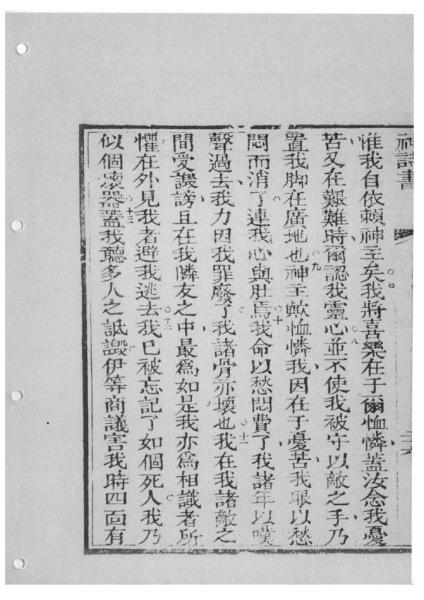 神詩書
惟我自依賴神主矣七我將喜樂在于爾恤憐蓋汝念我憂
苦又在艱難時爾認我靈心八並不使我被守以敵之手乃
置我脚在廣地也九神主歟恤憐我因在于憂苦我眼以愁
悶而消了連我心與肚焉十我命以愁悶費了我諸年以嘆
聲過去我力因我罪廢了我諸骨亦壞也十一我在我諸敵之
間受譭謗且在我隣友之中最爲如是我亦爲相識者所
懼在外見我者避我逃去十二我已被忘記了如個死人我乃
似個壞器十三蓋我聽多人之詆譭伊等商議害我時四面有